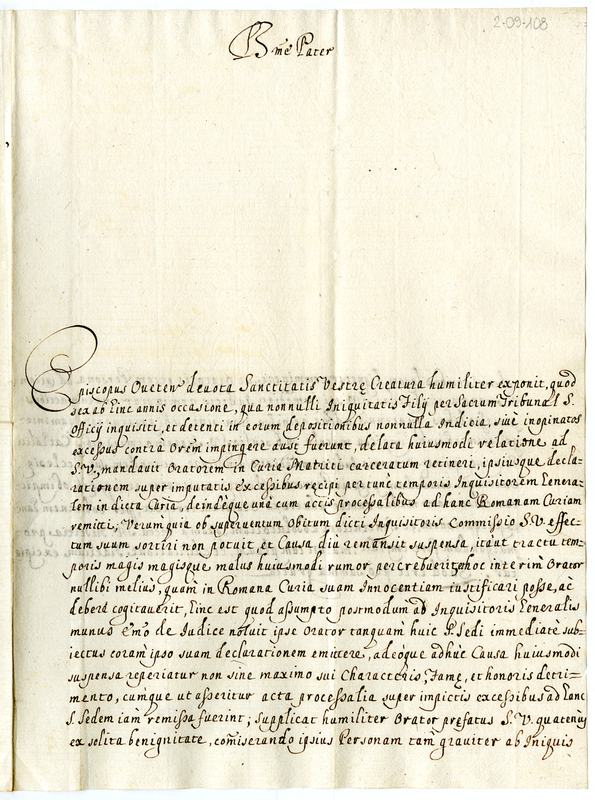 2-09-108
Bme Pater
Episcopus Oveten devota Sanctitatis Vestrę Creatura humiliter exponit, quod
sex ab hinc annis occasione, qua nonnulli Iniquitatis Filij per Sacrum Tribunal S.
Officij inquisiti, et detenti in eorum depositionibus nonnulla Indicia, sivè inopinatos
excessus contrà Orem impingere ausi fuerunt, delata huiusmodi relatione ad
S.V. mandavit Oratorem in Curia Matriti carceratum retineri, ipsiusque decla-
rationem super imputatis excessibus recipi per tunc temporis Inquisitorem Genera-
lem in dicta Curia, deindèque unà cum actis processalibus ad hanc Romanam Curiam
remitti; Verum quia ob superventum Obitum dicti Inquisitoris Commissio S.V. effec-
tum suum sortiri non potuit, et Causa diù remansit suspensa, ità ut tractu tem-
poris magis magisque malus huiusmodi rumor percrebuerit, hoc interim Orator
nullibi melius, quàm in Romana Curia suam Innocentiam iustificari posse, ac
deberè cogitaverit, hinc est quod assumpto postmodum ad Inquisitoris Generalis
munus Emo de Iudice noluit ipse Orator tanquam huic S. Sedi immediatè sub-
iectus coram ipso suam declarationem emittere, adeòque adhùc Causa huiusmodi
suspensa reperiatur non sine maximo sui Characteris, Famę, et honoris detri-
mento, cumque ut asseritur acta processalia super impictis excessibus ad hanc
S. Sedem iam remissa fuerint; Supplicat humiliter Orator prefatus S.V. quatenus
ex solita benignitate, comiserando ipsius Personam tam graviter ab Iniquis